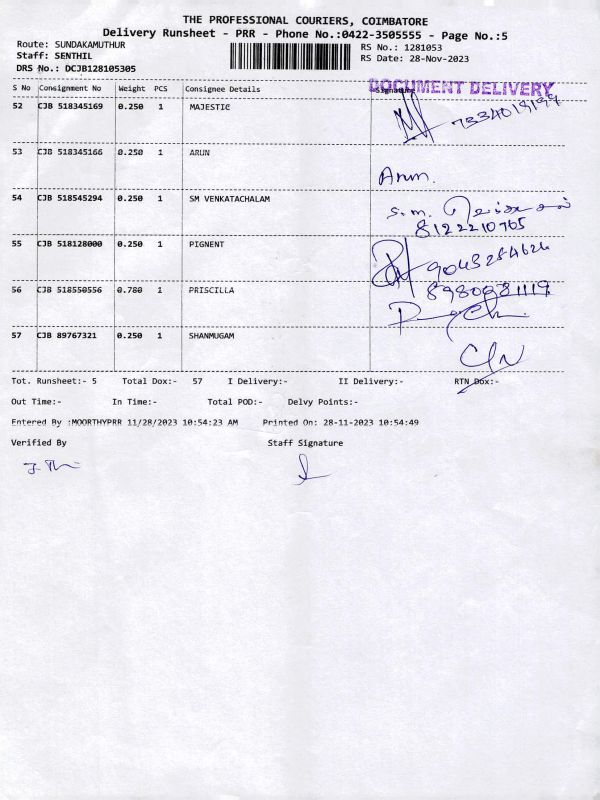 THE PROFESSIONAL COURIERS, COIMBATORE
Delivery Runsheet - PRR - Phone No.:0422-3505555 - Page No.:5
Route: SUNDAKAMUTHUR
RS No.: 1281053
Staff: SENTHIL
RS Date: 28-Nov-2023
DRS No.: DCJB128105305
DOCUMENT DELIVERY
S No Consignment No Weight PCS Consignee Details Signature
52 CJB 518345169 0.250 1 MAJESTIC
53 CJB 518345166 0.250 1 ARUN
Arun.
54 CJB 518545294 0.250 1 SM VENKATACHALAM
S.M.
8122210765
55 CJB 518128000 0.250 1 PIGNENT
9043284624
56 CJB 518550556 0.780 1 PRISCILLA
8980981119
57 CJB 89767321 0.250 1 SHANMUGAM
Tot. Runsheet:- 5 Total Dox:- 57 I Delivery:- II Delivery:- RTN Dox:-
Out Time:- In Time:- Total POD:- Delvy Points:-
Entered By :MOORTHYPRR 11/28/2023 10:54:23 AM Printed On: 28-11-2023 10:54:49
Verified By Staff Signature